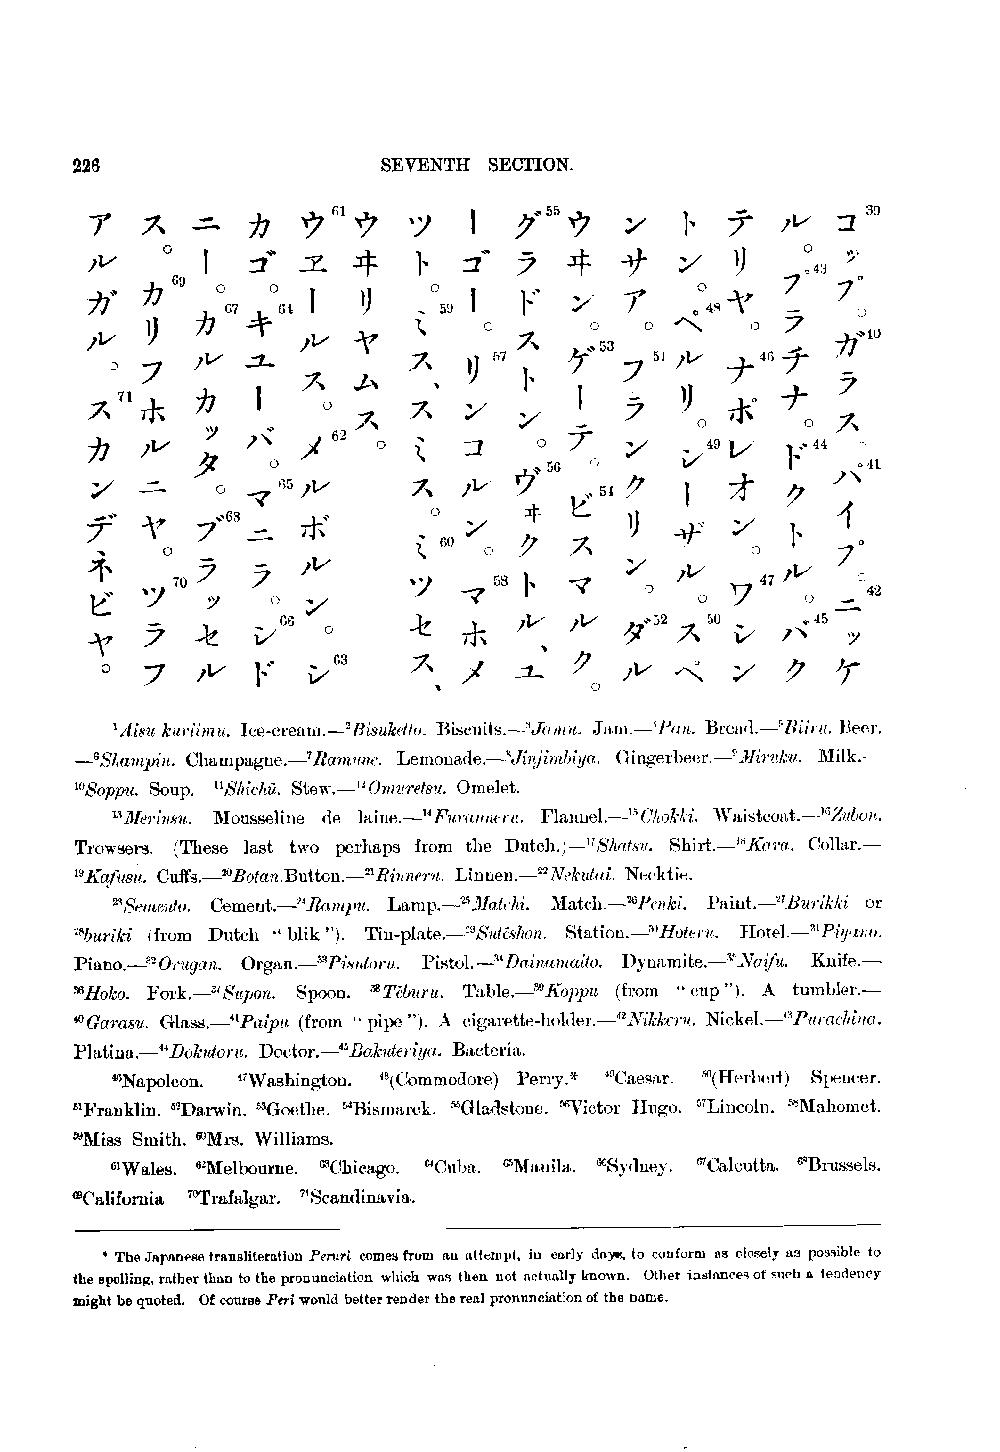 39コップ。40ガラス。41パイプ。42ニッケ
ル。43プラチナ。44ドクトル。45バク
テリヤ。46ナポレオン。47ワシン
トン。48ペルリ。49シーザル。50スペ
ンサア。51フランクリン。52ダル
ウヰン。53ゲーテ。54ビスマルク。
55グラドストン。56ヴヰクトル、ユ
ーゴー。57リンコルン。58マホメ
ツト。59ミス、スミス。60ミツセス、
ウヰリヤムス。
61ウヱールス。62メルボルン。63シ
カゴ。64キユーバ。65マニラ。66シド
ニー。67カルカッタ。68ブラッセル
ス。69カリフホルニヤ。70ツラフ
アルガル。71スカンデネビヤ。
226 SEVENTH SECTION.
¹Aisu kuriimu. Ice-cream.—²Bisuketto. Biscuits.—³Jamu. Jam.—⁴Pan. Bread.—⁵Biiru. Beer.
—⁶Shampin. Champagne.—⁷Ramune. Lemonade.—⁸Jinjimbiya. Gingerbeer.—⁹Miruku. Milk.-
¹⁰Soppu. Soup. ¹¹Shichū. Stew.—¹²Omuretsu. Omelet.
¹³Merinsu. Mousseline de laine.—¹⁴Furanneru. Flannel.—¹⁵Chokki. Waistcoat.—¹⁶Zubon.
Trowsers. (These last two perhaps from the Dutch.)—¹⁷Shatsu. Shirt.—¹⁸Kara. Collar.—
¹⁹Kafusu. Cuffs.—²⁰Botan.Button.—²¹Rinneru. Linnen.—²²Nekutai. Necktie.
²³Semento. Cement.—²⁴Rampu. Lamp.—²⁵Matchi. Match.—²⁶Penki. Paint.—²⁷Burikki or
²⁸buriki (from Dutch "blik"). Tin-plate.—²⁹Sutēshon. Station.—³⁰Hoteru. Hotel.—³¹Piyano.
Piano.—³²Orugan. Organ.—³³Pisutoru. Pistol.—³⁴Dainamaito. Dynamite.—³⁵Naifu. Knife.—
³⁶Hoko. Fork.—³⁷Supon. Spoon. ³⁸Tēburu. Table.—³⁹Koppu (from "cup"). A tumbler.—
⁴⁰Garasu. Glass.—⁴¹Paipu (from "pipe"). A cigarette-holder.—⁴²Nikkeru. Nickel.—⁴³Purachina.
Platina.—⁴⁴Dokutoru. Doctor.—⁴⁵Bakuteriya. Bacteria.
⁴⁶Napoleon. ⁴⁷Washington. ⁴⁸(Commodore) Perry.* ⁴⁹Caesar. ⁵⁰(Herbert) Spencer.
⁵¹Franklin. ⁵²Darwin. ⁵³Goethe. ⁵⁴Bismarck. ⁵⁵Gladstone. ⁵⁶Victor Hugo. ⁵⁷Lincoln. ⁵⁸Mahomet.
⁵⁹Miss Smith. ⁶⁰Mrs. Williams.
⁶¹Wales. ⁶²Melbourne. ⁶³Chicago. ⁶⁴Cuba. ⁶⁵Manila. ⁶⁶Sydney. ⁶⁷Calcutta. ⁶⁸Brussels.
⁶⁹California ⁷⁰Trafalgar. ⁷¹Scandinavia.
* The Japanese transliteration Peruri comes from an attempt, in early days, to conform as closely as possible to
the spelling, rather than to the pronunciation which was then not actually known. Other instances of such a tendency
might be quoted. Of course Peri would better render the real pronunciation of the name.